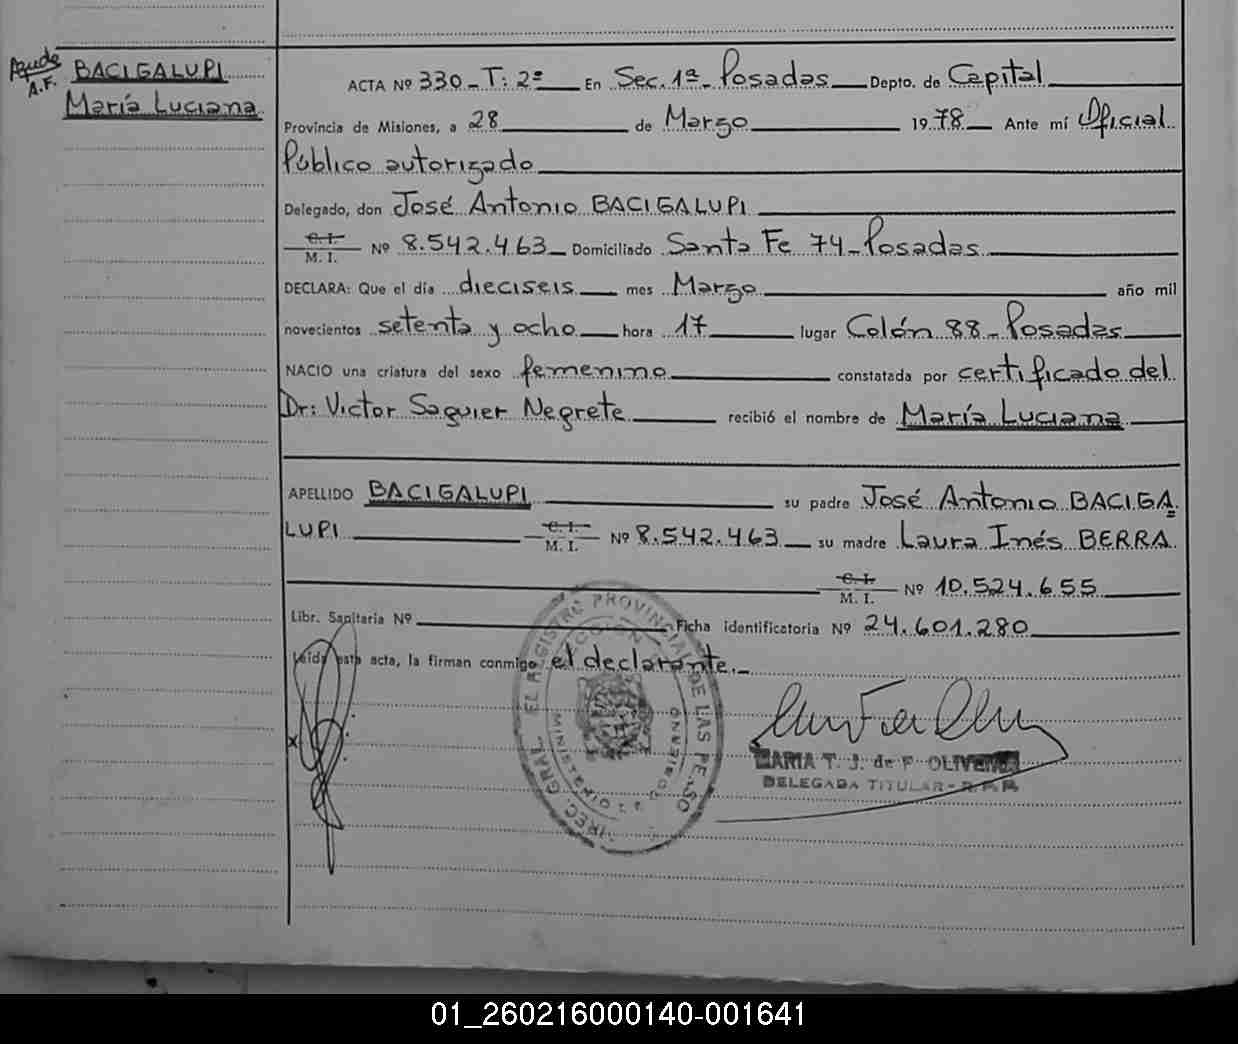 Ayuda
A.F.
BACIGALUPI
María Luciana
ACTA Nº 330 - T: 2º En Sec. 1ª - Posadas Depto. de Capital
Provincia de Misiones, a 28 de Marzo 1978 Ante mí Oficial
Público autorizado
Delegado, don José Antonio BACIGALUPI
C. I.
M. I. Nº 8.542.463 Domiciliado Santa Fe 74 - Posadas
DECLARA: Que el día dieciseis mes Marzo año mil
novecientos setenta y ocho hora 17 lugar Colón 88 - Posadas
NACIO una criatura del sexo femenino constatada por certificado del
Dr: Victor Saguier Negrete recibió el nombre de María Luciana
APELLIDO BACIGALUPI su padre José Antonio BACIGA=
LUPI C. I. M. I. Nº 8.542.463 su madre Laura Inés BERRA
C. I. M. I. Nº 10.524.655
Libr. Sanitaria Nº Ficha identificatoria Nº 24.601.280
Leída esta acta, la firman conmigo el declarante.-
DIREC. GRAL. EL REGISTRO PROVINCIAL DE LAS PERSO
MINISTERIO GOBIERNO
MARIA T. J. de F. OLIVEIRA
DELEGADA TITULAR - R.P.P.
01_260216000140-001641